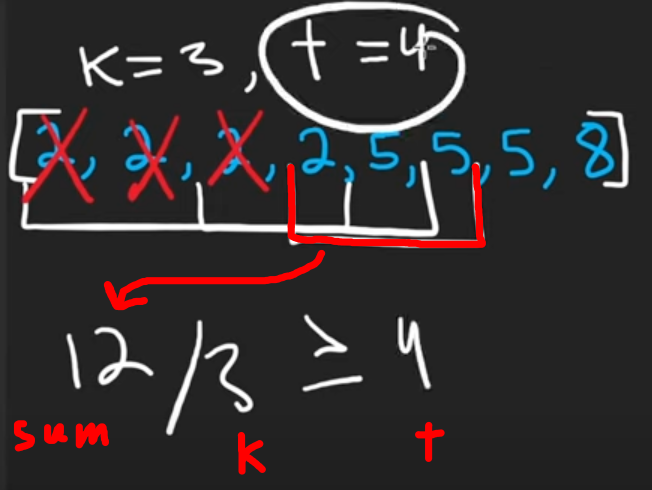 K = 3, t = 4
[2, 2, 2, 2, 5, 5, 5, 8]
12/3 ≥ 4
sum K t